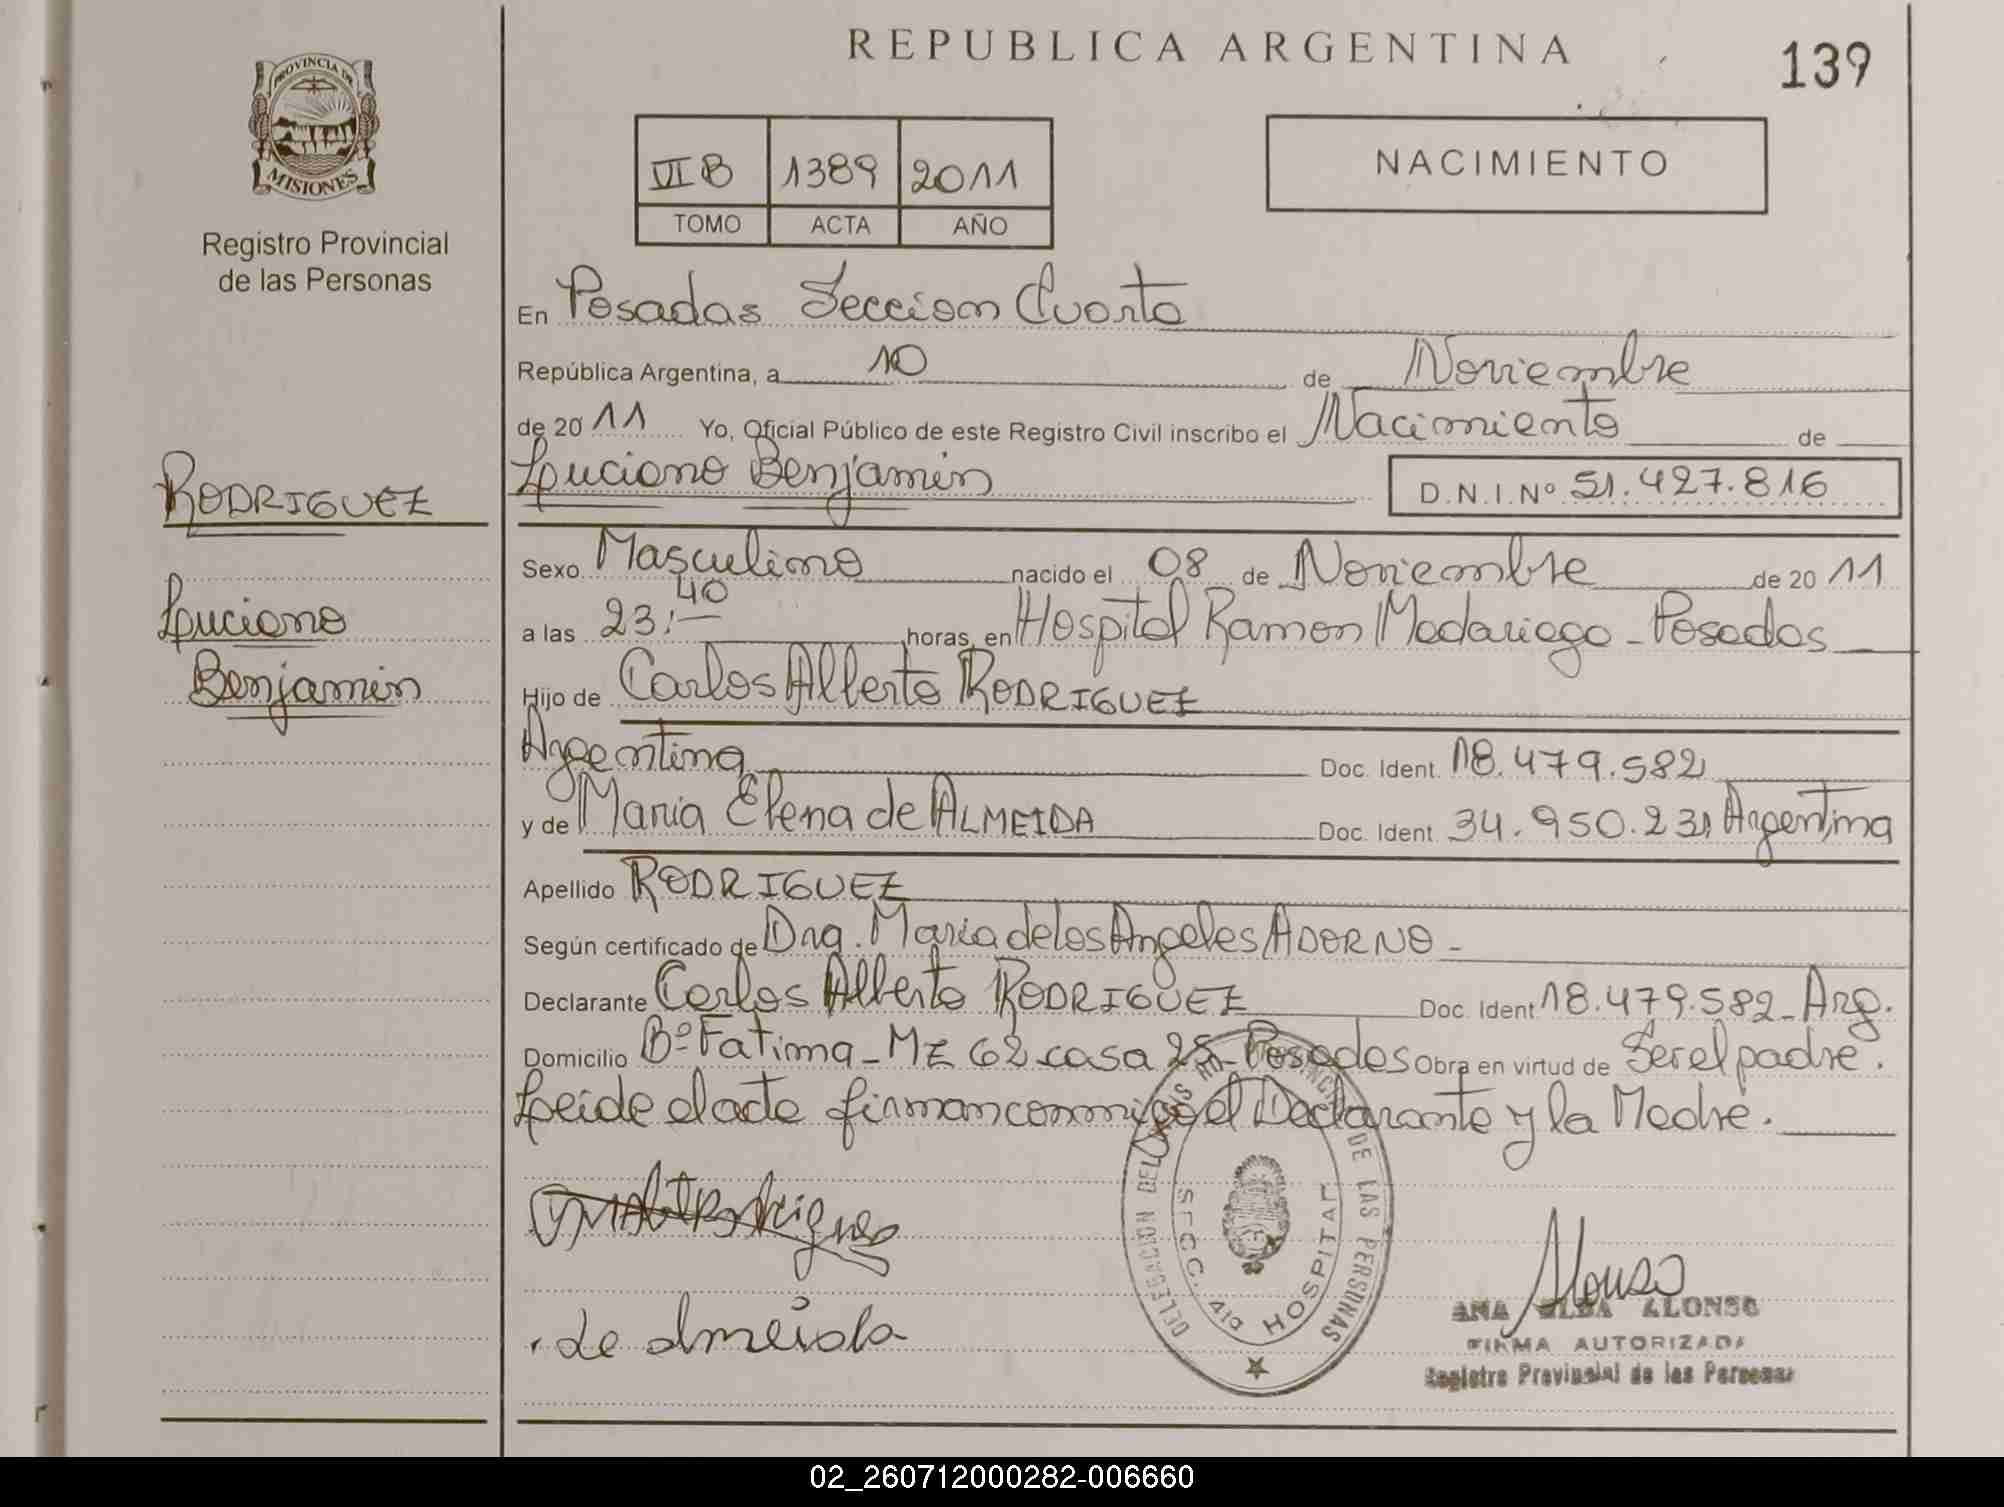 REPUBLICA ARGENTINA
139
PROVINCIA DE
MISIONES
Registro Provincial
de las Personas
VI B 1389 2011
TOMO ACTA AÑO
NACIMIENTO
En Posadas Seccion Cuarta
República Argentina, a 10 de Noviembre
de 2011 Yo, Oficial Público de este Registro Civil inscribo el Nacimiento de
Luciano Benjamin
D.N.I.Nº 51.427.816
RODRIGUEZ
Luciano
Benjamin
Sexo Masculino nacido el 08 de Noviembre de 2011
a las 23:40 horas, en Hospital Ramon Madariaga - Posadas
Hijo de Carlos Alberto RODRIGUEZ
Argentina Doc. Ident. 18.479.582
y de Maria Elena de ALMEIDA Doc. Ident. 34.950.231 Argentina
Apellido RODRIGUEZ
Según certificado de Dra. Maria de los Angeles ADORNO -
Declarante Carlos Alberto RODRIGUEZ Doc. Ident 18.479.582 - Arg.
Domicilio Bº Fatima - Mz 62 casa 25 - Posadas Obra en virtud de Ser el padre.
Leida el acta firman conmigo el Declarante y la Madre.
Rodriguez
de almeida
DELEGACION DEL REGISTRO PROVINCIAL DE LAS PERSONAS
SECC. 4ta HOSPITAL
Alonso
ANA ELBA ALONSO
FIRMA AUTORIZADA
Registro Provincial de las Personas
02_260712000282-006660